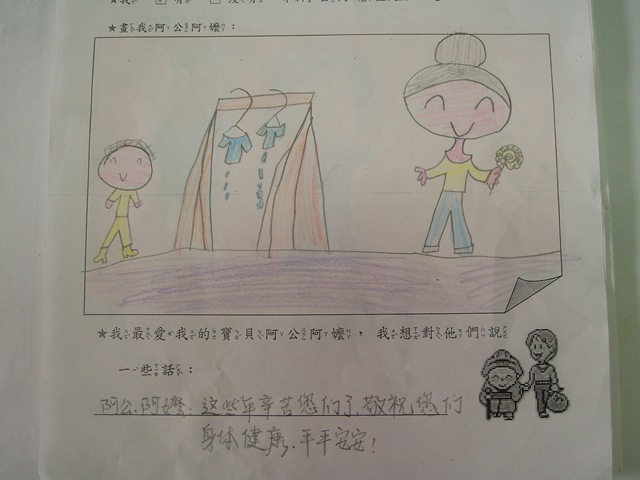 ★畫我阿公阿嬤：
★我最愛我的寶貝阿公阿嬤，我想對他們說
一些話：
阿公.阿嬤:這些年辛苦您们了,敬祝,您们
身体健康.平平安安!